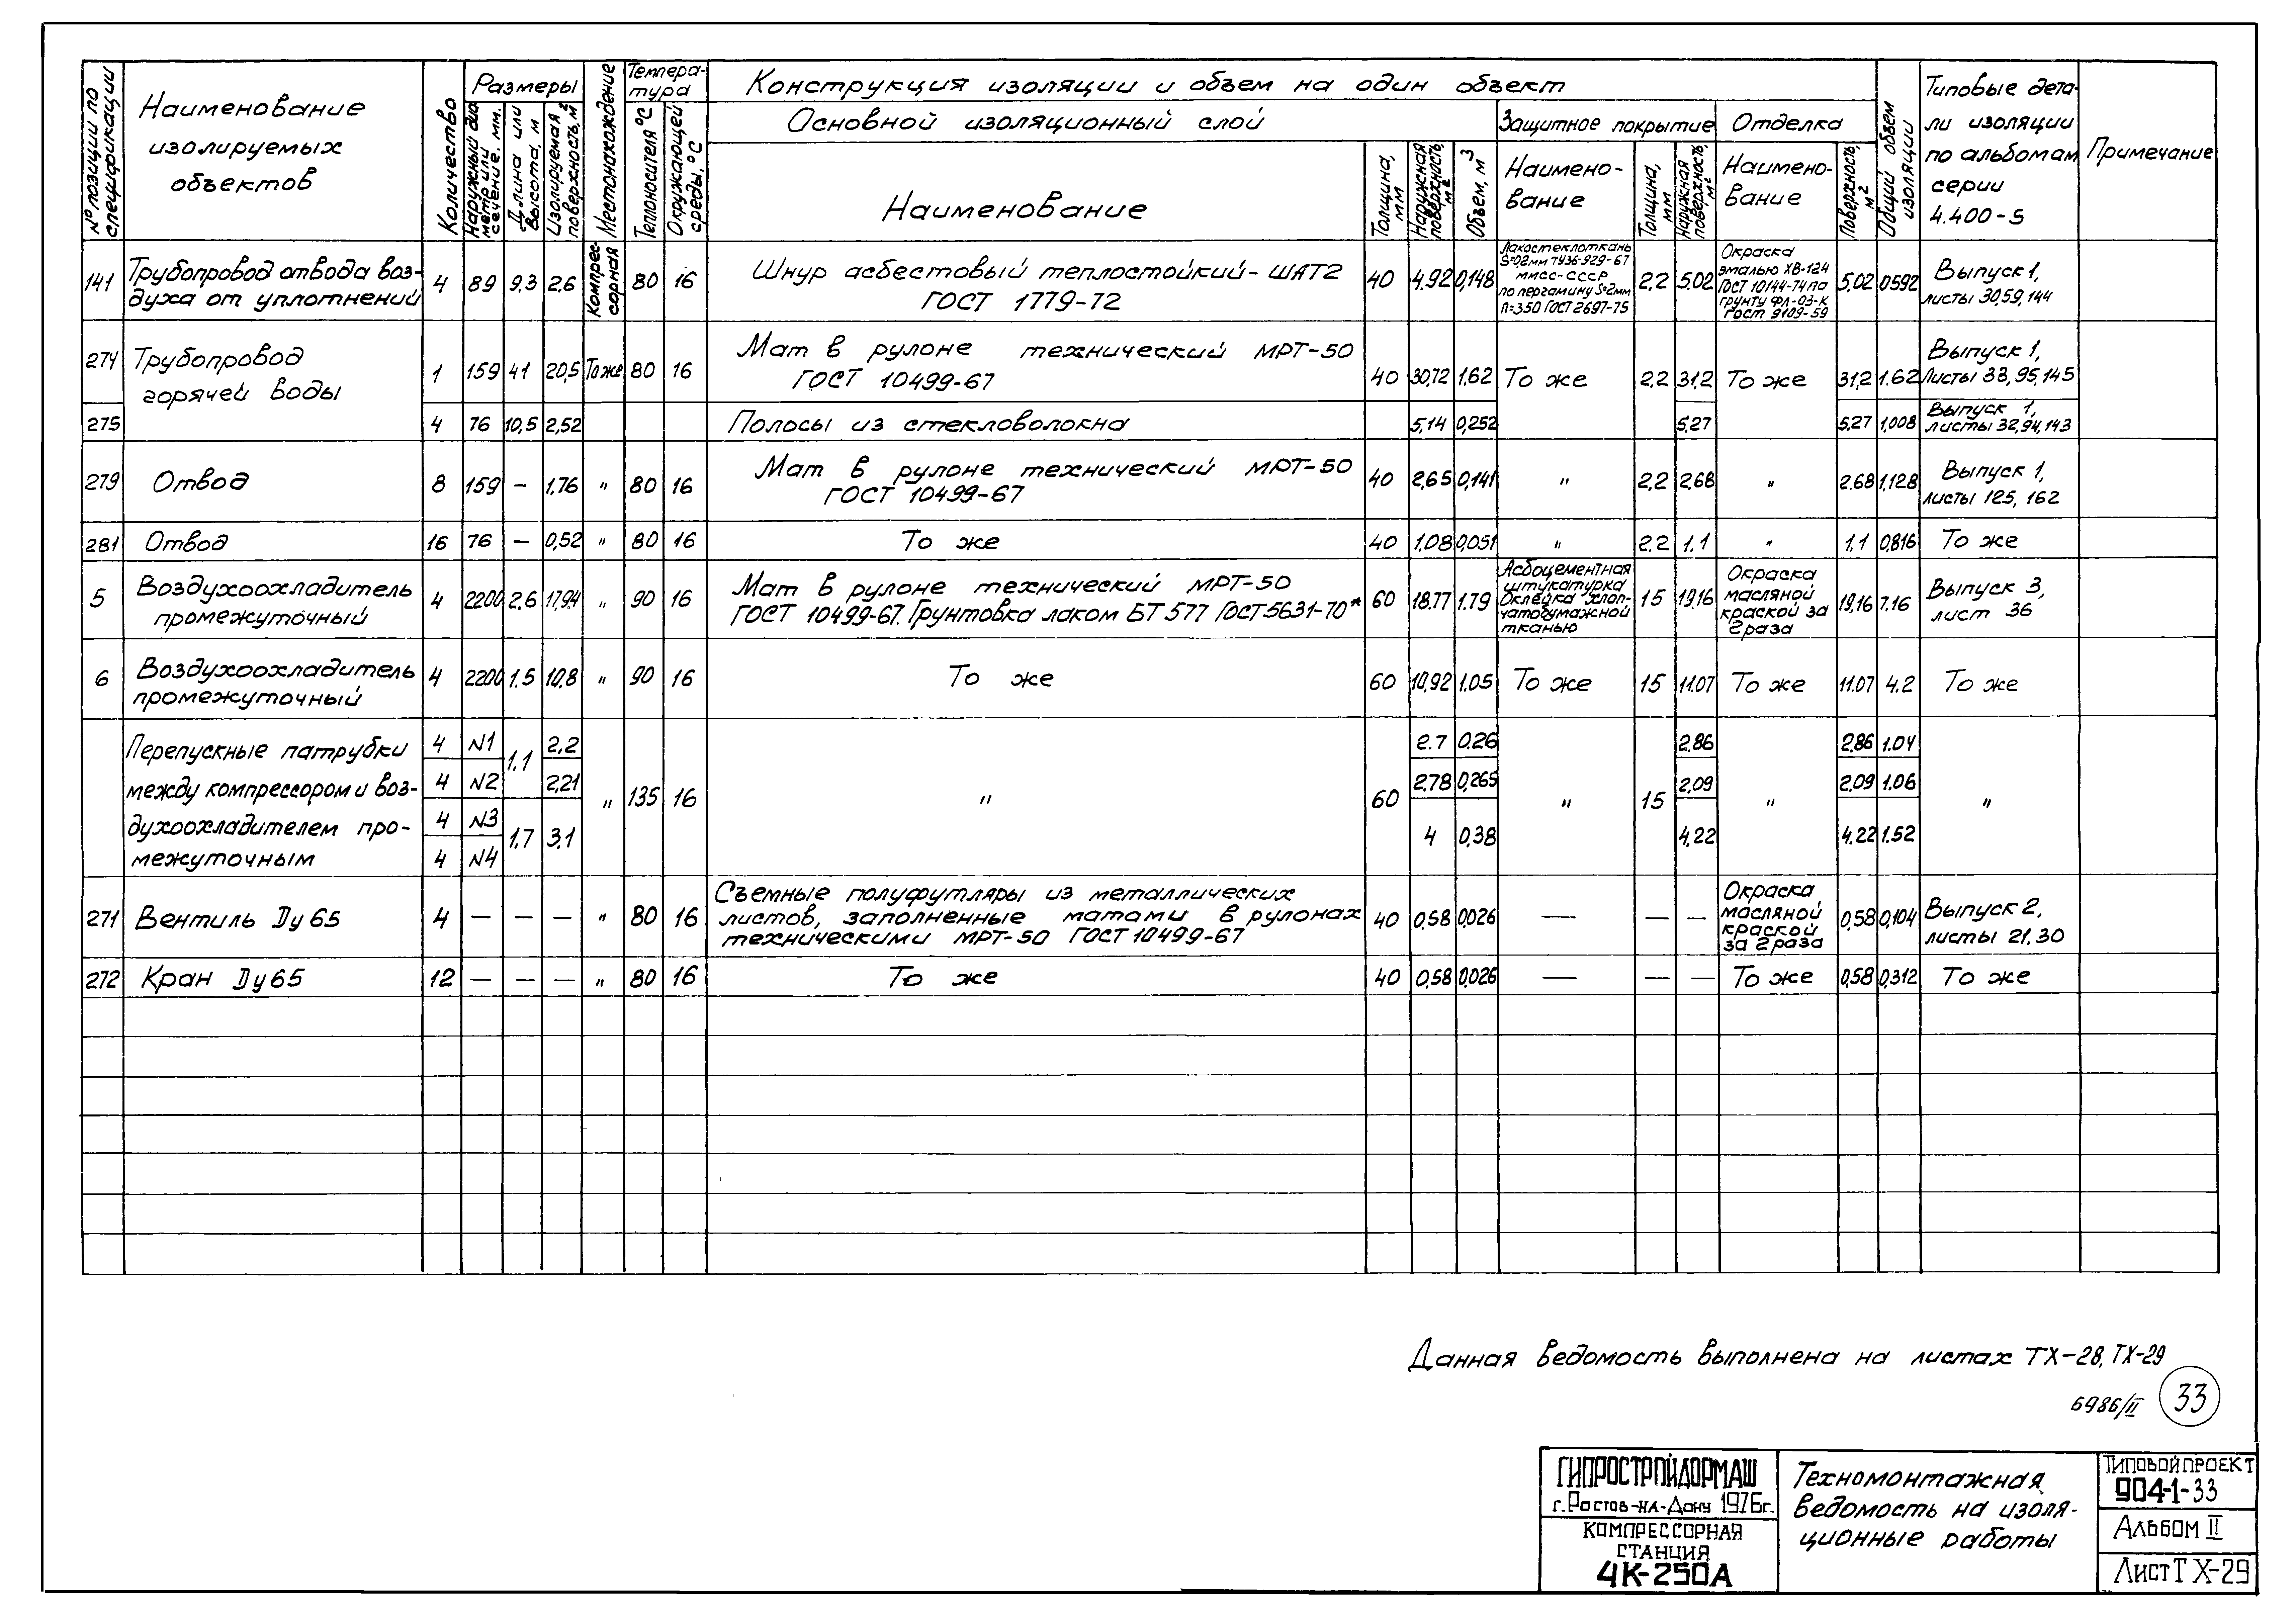 № позиции по спецификации
Наименование изолируемых объектов
Количество
Размеры
Наружный диаметр или сечение. мм.
Длина или высота, м
Изолируемая поверхность, м²
Местонахождение
Температура
Теплоносителя °С
Окружающей среды, °С
Конструкция изоляции и объем на один объект
Основной изоляционный слой
Наименование
Толщина, мм
Наружная поверхность, м²
Объем, м³
Защитное покрытие
Наимено-вание
Толщина, мм
Наружная поверхность, м²
Отделка
Наимено-вание
Поверхность, м²
Общий объем изоляции
Типовые дета-
ли изоляции
по альбомам
серии
4.400-5
Примечание
141 Трубопровод отвода воз-духа от уплотнений 4 89 9,3 2,6 Компрес-сорная 80 16 Шнур асбестовый теплостойкий-ШАТ2 ГОСТ 1779-72 40 4.92 0,148 Лакостеклоткань S=0,2мм ТУ36-929-67 ММСС-СССР по пергамину S=2мм П=350 ГОСТ 2697-75 2,2 5.02 Окраска эмалью ХВ-124 ГОСТ 10144-74 по грунту ФЛ-03-К ГОСТ 9109-59 5,02 0592 Выпуск 1, листы 30,59,144
274 Трубопровод горячей воды 1 159 41 20,5 То же 80 16 Мат в рулоне технический МРТ-50 ГОСТ 10499-67 40 30,72 1.62 То же 2,2 31,2 То же 31,2 1.62 Выпуск 1, Листы 33,95,145
275 4 76 10,5 2,52 Полосы из стекловолокна 5,14 0,252 5,27 5,27 1,008 Выпуск 1, листы 32,94,143
279 Отвод 8 159 – 1,76 " 80 16 Мат в рулоне технический МРТ-50 ГОСТ 10499-67 40 2,65 0,141 " 2,2 2,68 " 2.68 1,128 Выпуск 1, листы 125, 162
281 Отвод 16 76 – 0,52 " 80 16 То же 40 1.08 0,051 " 2.2 1.1 " 1.1 0,816 То же
5 Воздухоохладитель промежуточный 4 2200 2,6 17,94 " 90 16 Мат в рулоне технический МРТ-50 ГОСТ 10499-67. Грунтовка лаком БТ 577 ГОСТ 5631-70* 60 18.77 1.79 Асбоцементная штукатурка Оклейка хлоп-чатобумажной тканью 15 19,16 Окраска масляной краской за 2 раза 19,16 7.16 Выпуск 3, лист 36
6 Воздухоохладитель промежуточный 4 2200 1.5 10,8 " 90 16 То же 60 10,92 1.05 То же 15 11.07 То же 11.07 4.2 То же
Перепускные патрубки
между компрессором и воз-
духоохладителем про-
межуточным
4 N1 1,1 2,2 " 135 16 " 60 2.7 0.26 " 15 2.86 " 2.86 1.04 "
4 N2 2,21 2.78 0,265 2,09 2.09 1.06
4 N3 1,7 3,1 4 0,38 4,22 4.22 1.52
4 N4
271 Вентиль Ду 65 4 – – – " 80 16 Съемные полуфутляры из металлических листов, заполненные матами в рулонах техническими МРТ-50 ГОСТ 10499-67 40 0,58 0,026 – – – Окраска масляной краской за 2 раза 0,58 0,104 Выпуск 2, листы 21.30
272 Кран Ду 65 12 – – – " 80 16 То же 40 0,58 0,026 – – – То же 0,58 0,312 То же
Данная ведомость выполнена на листах ТХ-28, ТХ-29
6986/II 33
ГИПРОСТРОЙДОРМАШ
г. Ростов-на-Дону 1976г.
КОМПРЕССОРНАЯ
СТАНЦИЯ
4К-250А
Техномонтажная
ведомость на изоля-
ционные работы
ТИПОВОЙ ПРОЕКТ
904-1-33
АЛЬБОМ II
ЛИСТ ТХ-29